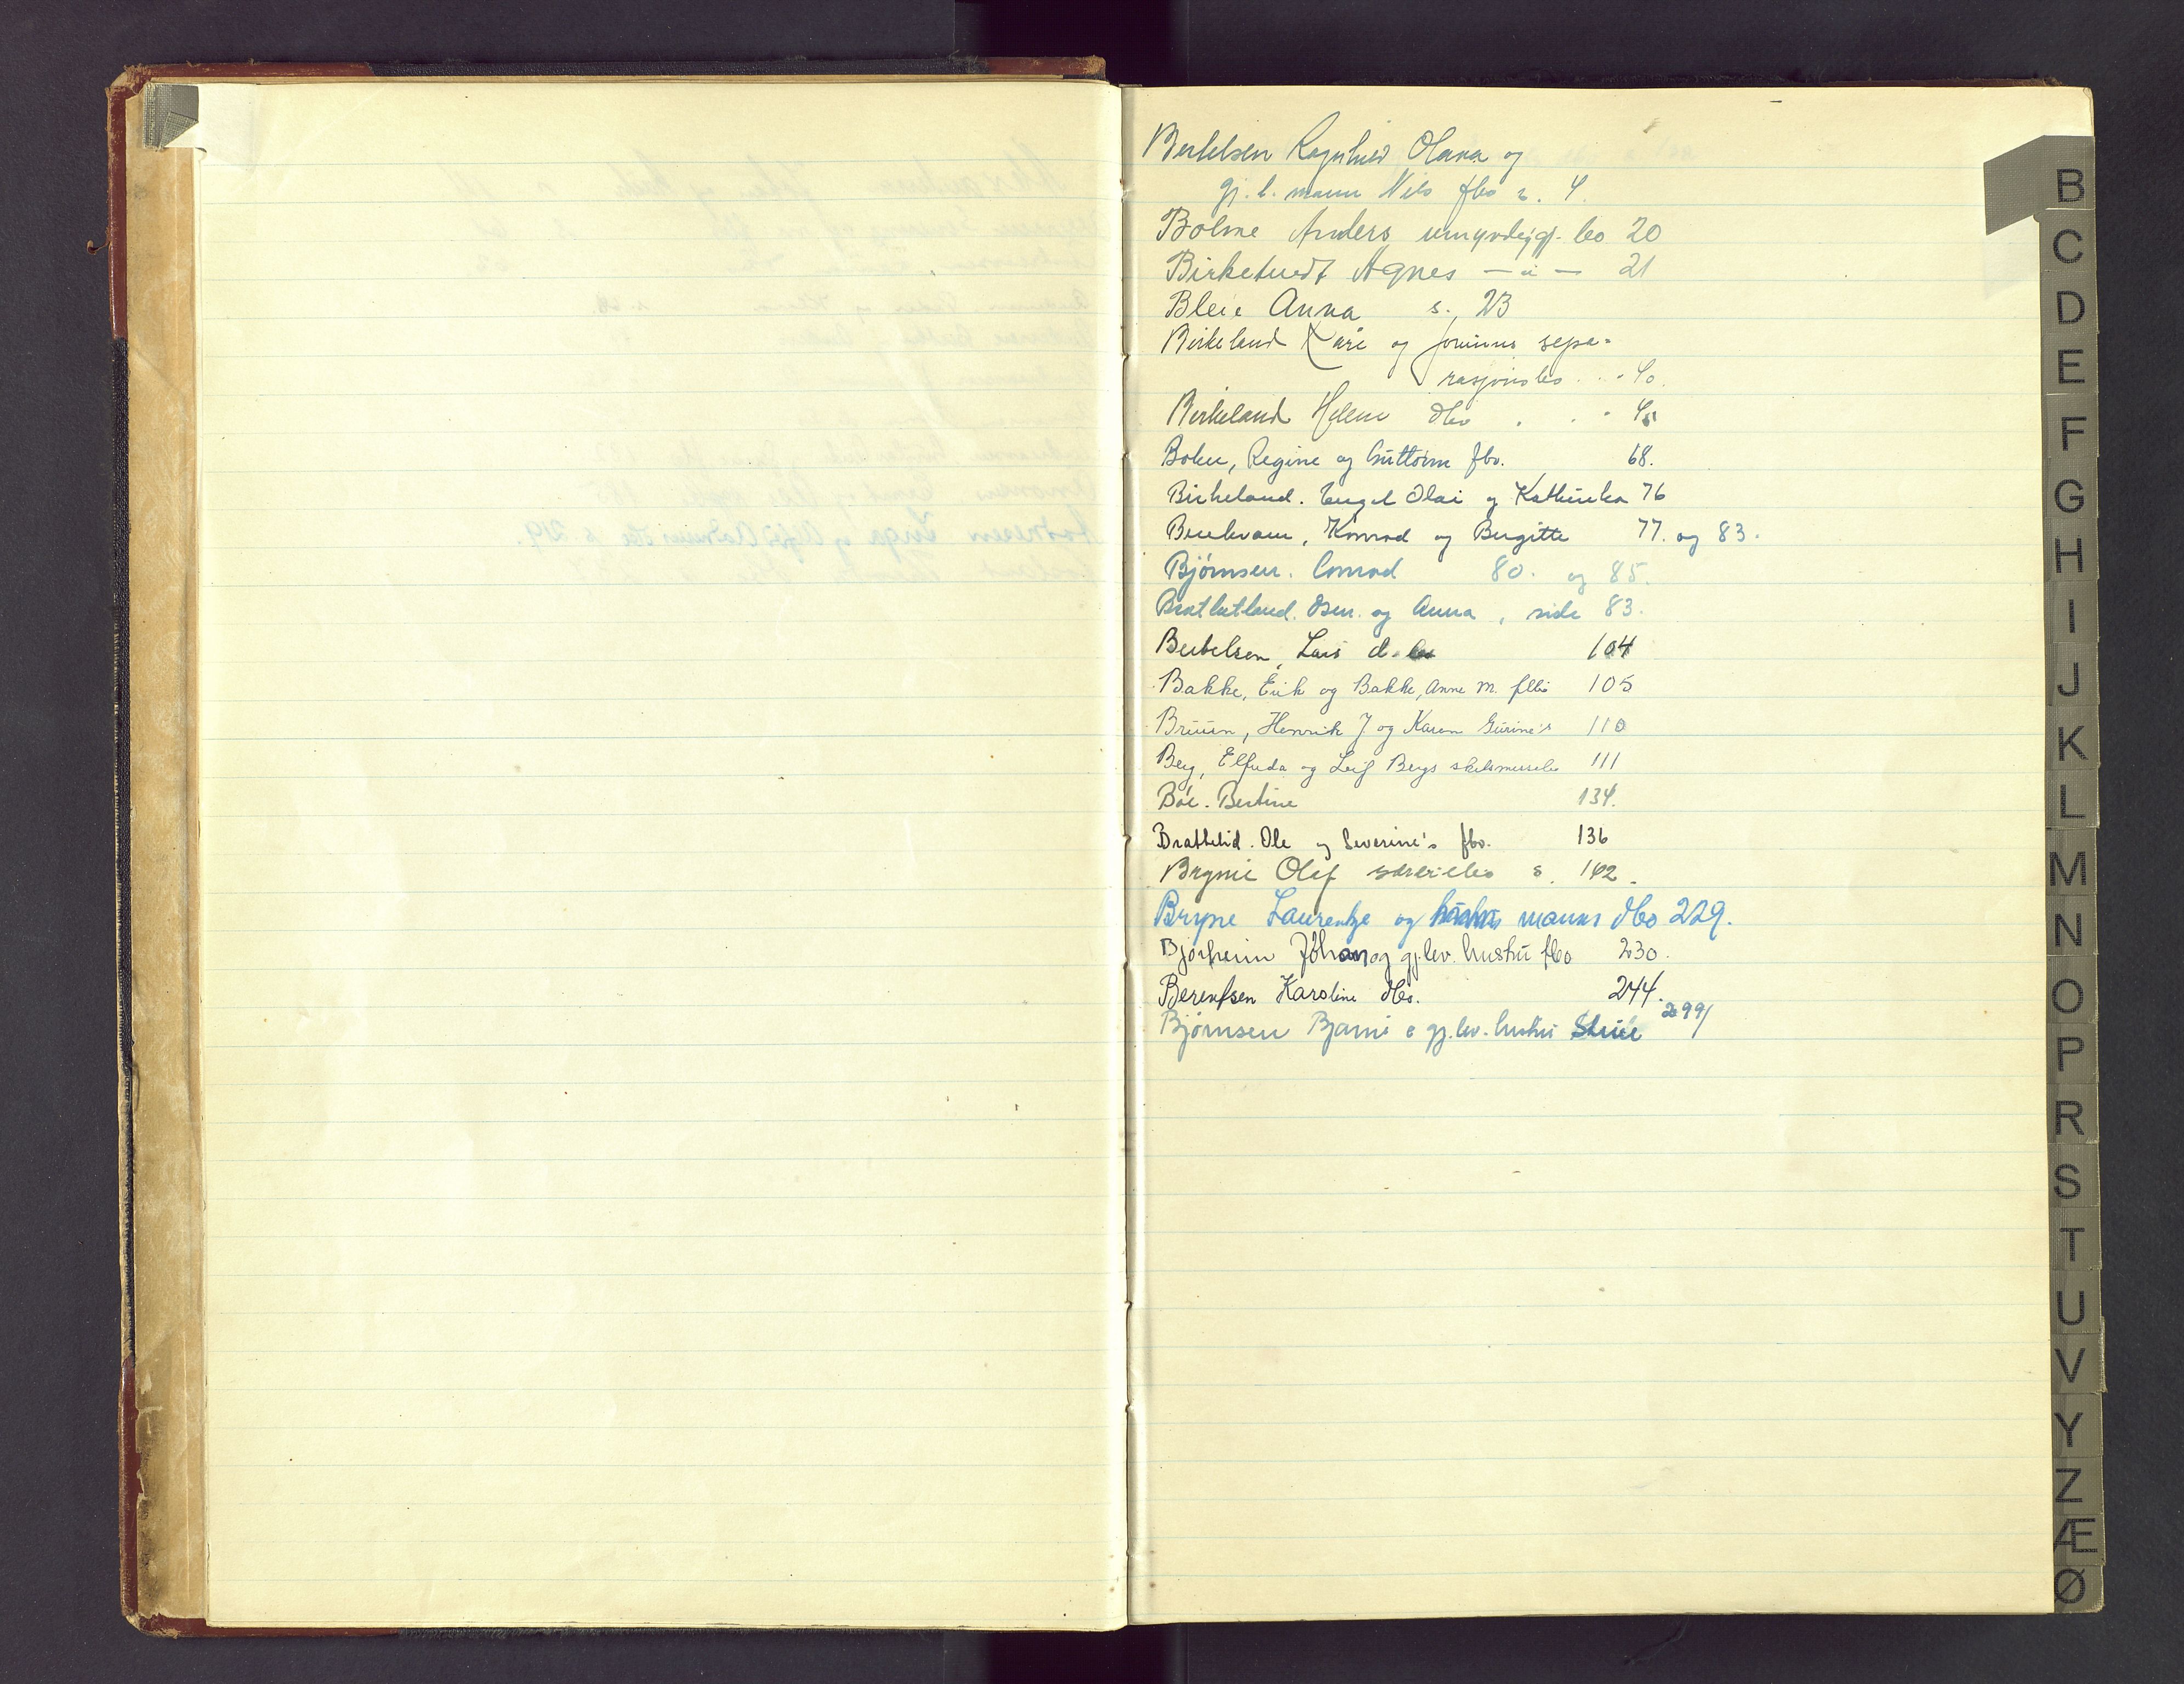 Bertelsen Ragnhild Olava og
gj. l. mann Nils fbo s. 4.
Bolme Anders umyndiggj. bo 20
Birketvedt Agnes — " — 21
Bleie Anna s. 23
Birkeland Kåre og sepa-
rasjonsbo . . . 40.
Birkeland Helene dbo . . . 45
Boken, Regine og Guttorm fbo. 68.
Birkeland. Engel Olai og Kathinka 76
Konrad og Birgitte 77. og 83.
Bjørnsen. Conrad 80. og 85.
Osm. og Anna, side 83.
Bertelsen, Lars d. bo 104
Bakke, Erik og Bakke, Anne M. fbo 105
Bruun, Henrik J og Karen Gurine's 110
Berg, Elfrida og Leif Bergs skilsmissebo 111
Bøe. Bertine 134.
Brattelid. Ole og Severine's fbo. 136
Bryne Olaf særeiebo s. 142.
Bryne Laurentze og manns dbo 229.
Bjorheim Johan og gj.lev. hustru fbo 230.
Berentsen Karoline dbo. 244.
Bjørnsen Bjarne & gj.lev. hustru 299/
B
C
D
E
F
G
H
I
J
K
L
M
N
O
P
R
S
T
U
V
Y
Z
Æ
Ø